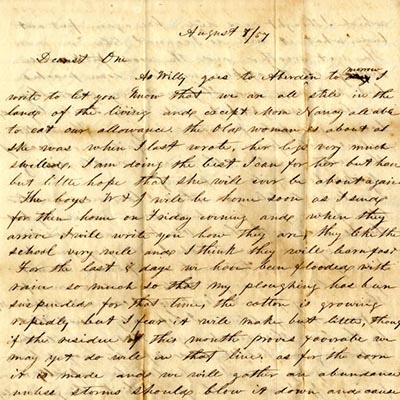 August 8/57
Dearest One
As Willy goes to Aberdeen to morrow I
write to let you know that we are all still in the
lands of the living and except Mom Nancy all able
to eat our allowance. the Old woman is about as
she was when I last wrote, her legs very much
swelled. I am doing the best I can for her but have
but little hope that she will ever be about again
The boys W & J will be home soon as I send
for them home on Friday evening and when they
arrive I will write you how they are, they like the
school very well and I think they will learn fast
For the last 8 days we have been flooded with
rain so much so that my ploughing has been
suspended for that time, the cotton is growing
rapidly but I fear it will make but little, though
if the residue of this month proves favorable we
may yet do well in that line, as for the corn
it is made and we will gather an abundance
unless storms should blow it down and cause